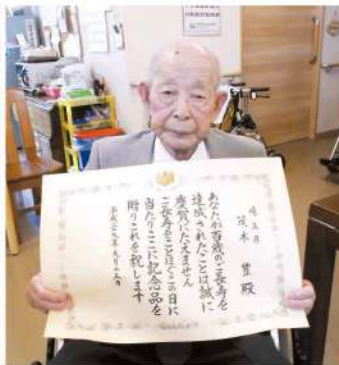 埼玉県
茂木 豊殿
あなたが百歳のご長寿を
達成されたことは誠に
慶賀にたえません
ご長寿をことほぐこの日に
当たりここに記念品を
贈りこれを祝します
平成二十九年九月十五日